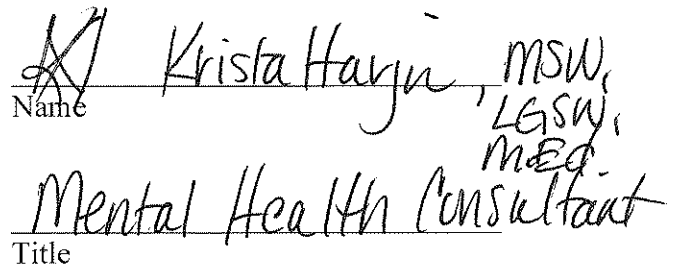 Krista Harjn, MSW,
LGSW,
MEd.
Name
Mental Health Consultant
Title